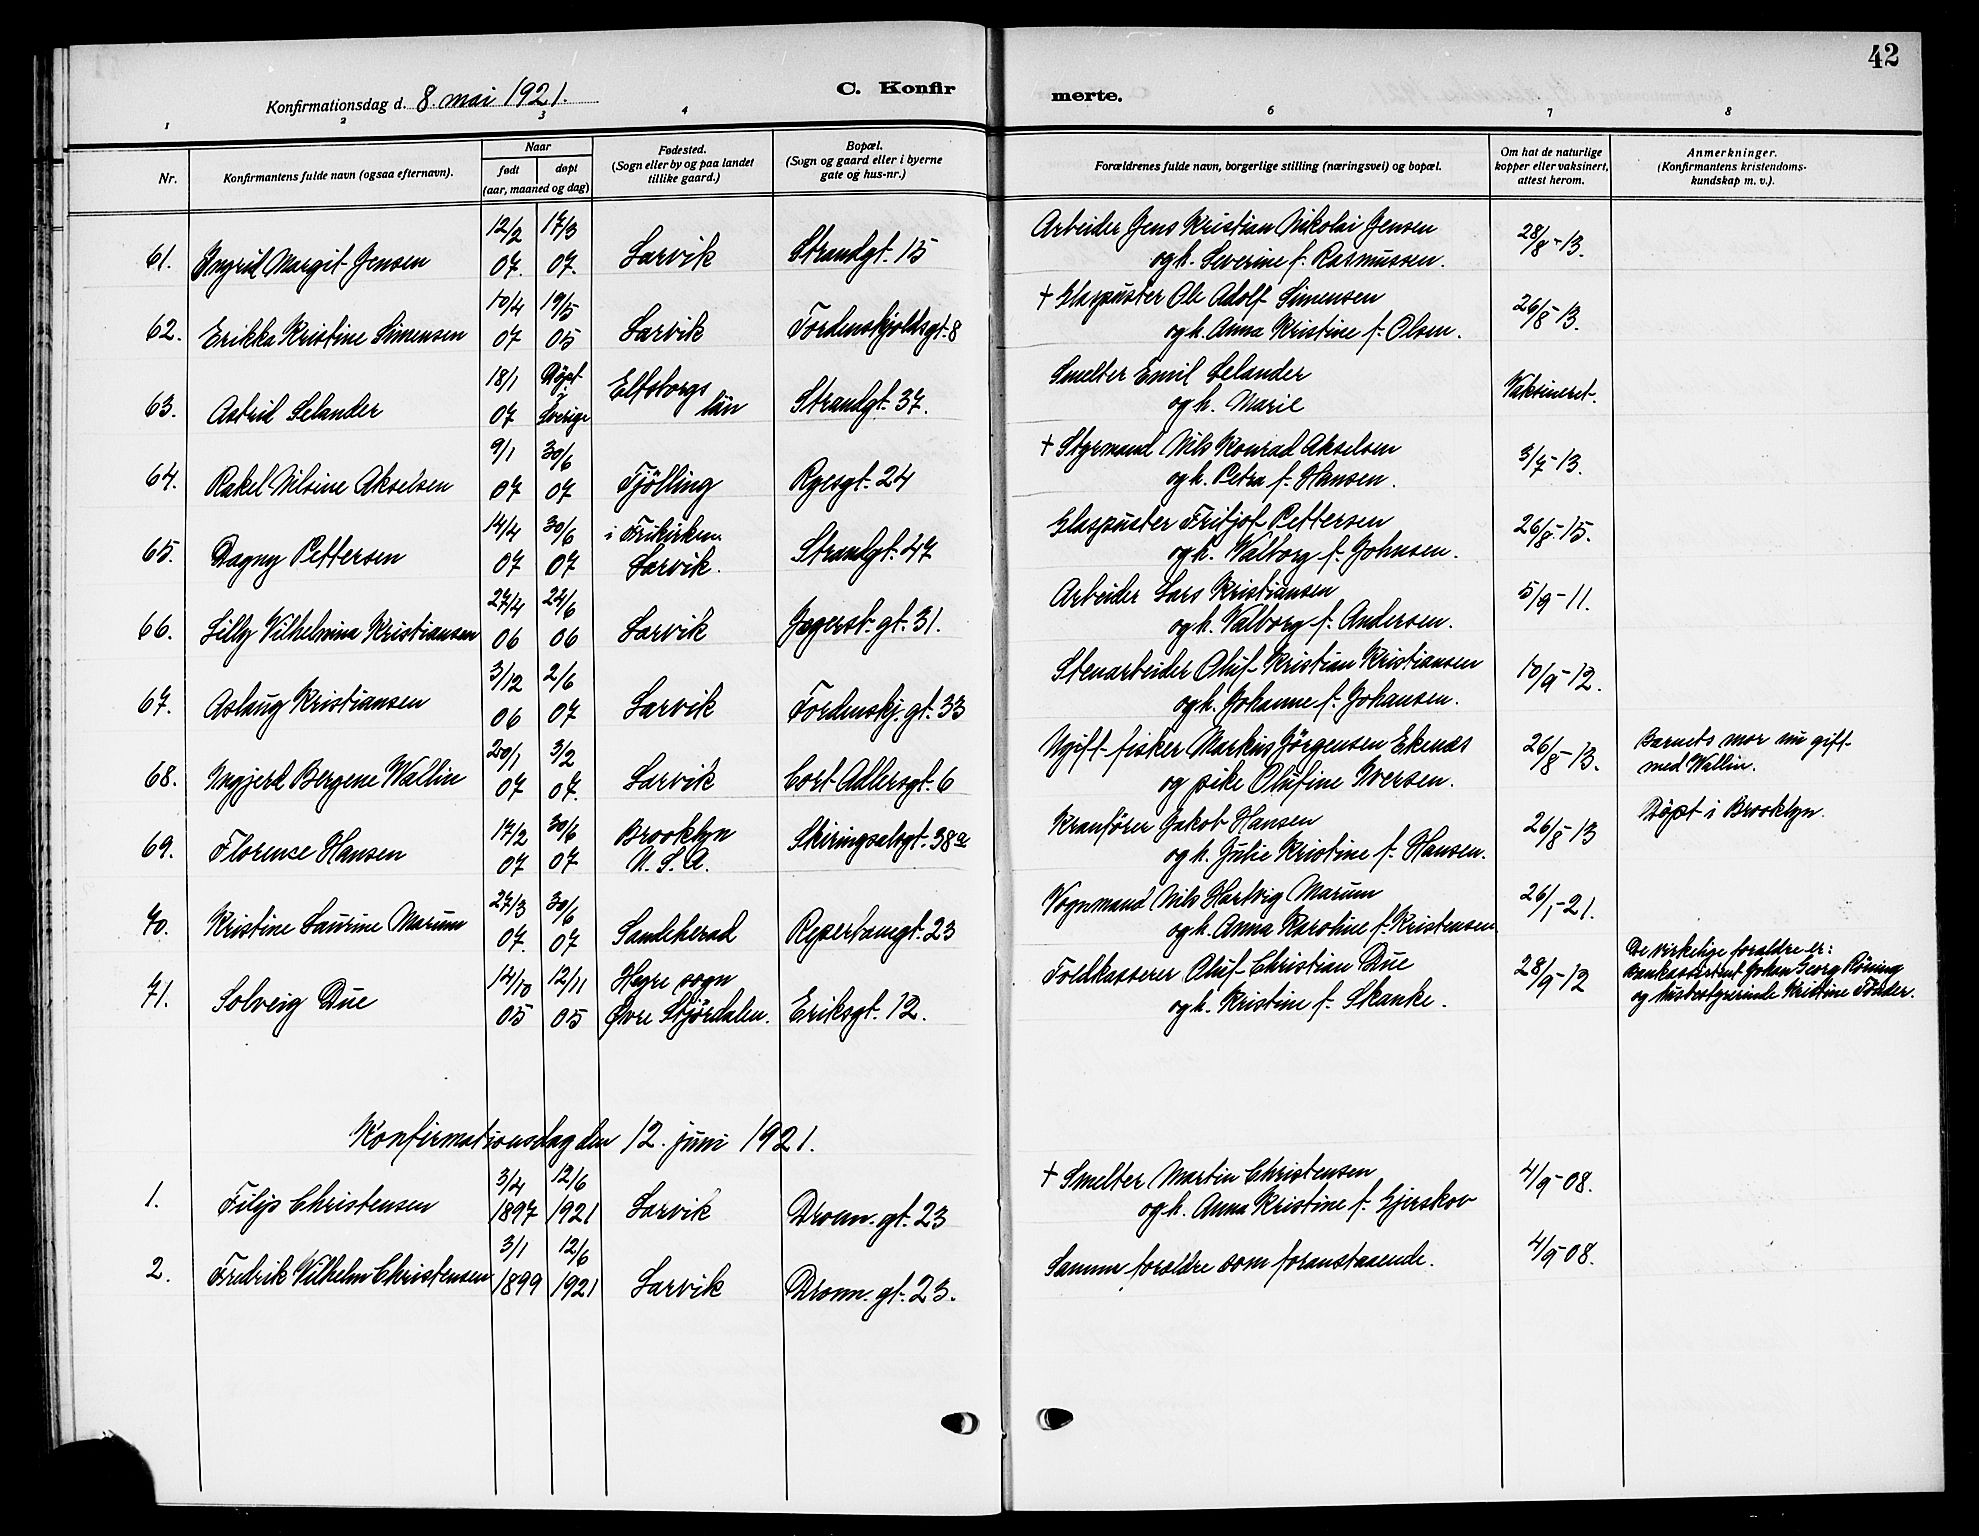 42
Konfirmationsdag d. 8. mai 1921.
C. Konfir
merte.
1 2 3 4 6 7 8
Nr.
Konfirmantens fulde navn (ogsaa efternavn).
Naar
født døpt
(aar, maaned og dag)
Fødested.
(Sogn eller by og paa landet
tillike gaard.)
Bopæl.
(Sogn og gaard eller i byerne
gate og hus-nr.)
Forældrenes fulde navn, borgerlige stilling (næringsvei) og bopæl.
Om hat de naturlige
kopper eller vaksinert,
attest herom.
Anmerkninger.
(Konfirmantens kristendoms-
kundskap m. v.).
12/2 17/3 Arbeider Jens Kristian Nikolai Jensen
61. Ingrid Margit Jensen 07. 07. Larvik Strandgt. 15 og h. Severine f. Rasmussen. 28/8-13.
10/4 19/5 † Glaspuster Ole Adolf Simensen
62. Erikka Kristine Simensen 07 05 Larvik Tordenskjoldsgt. 8 og h. Anna Kristine f. Olsen. 26/8-13.
18/1 Døpt Elfsborgs Smelter Emil Selander
63. Astrid Selander 07 i Sverige län Strandgt. 37. og h. Marie Vaksineret.
9/1 30/6 † Styrmand Nils Konrad Akselsen
64. Rakel Nilsine Akselsen 07 07 Tjölling Ryesgt. 24 og h. Petra f. Hansen. 3/7-13.
14/4 30/6 i Frikirken Glaspuster Fritjof Pettersen
65. Dagny Pettersen 07 07 Larvik. Strandgt. 47 og h. Valborg f. Johnsen. 26/8-15.
27/4 24/6 Arbeider Lars Kristiansen
66. Lilly Vilhelmina Kristiansen 06 06 Larvik Jegerst. gt. 31. og h. Valborg f. Andersen. 5/9-11.
3/12 2/6 Stenarbeider Oluf Kristian Kristiansen
67. Aslaug Kristiansen 06 07 Larvik Tordenskj. gt. 33 og h. Johanne f. Johansen. 10/9-12.
20/1 3/2 Ugift fisker Markus Jørgensen Ekenæs Barnets mor nu gift
68. Ingjerd Bergene Wallin 07 07. Larvik Cort Adlersgt. 6 og pike Olufine Iversen. 26/8-13. med Wallin.
17/2 30/6 Brooklyn Kranfører Jakob Hansen Døpt i Brooklyn.
69. Florence Hansen 07 07 U. S. A. Skiringsalsgt. 38a og h. Julie Kristine f. Hansen. 26/8-13
27/3 30/6 Vognmand Nils Hartvig Marum
70. Kristine Laurine Marum 07. 07 Sandeherad Reperbanegt. 23 og h. Anna Karoline f. Kristensen 26/1-21.
14/10 12/11 Hegre sogn Toldkasserer Oluf Christian Due De virkelige foraldre er:
71. Solveig Due 05 05 Øvre Stjördalen. Eriksgt. 12. og h. Kristine f. Skanke. 28/9-12 Bankassistent Johan Georg Röning
og husbestyrerinde Kristine Tønder.
Konfirmationsdag den 12. juni 1921.
3/4 12/6 † Smelter Martin Christensen
1. Filip Christensen 1897 1921 Larvik Dronn. gt. 23 og h. Anna Kristine f. Gjerskov 4/9-08.
3/1 12/6
2. Fredrik Vilhelm Christensen 1899 1921 Larvik Dronn. gt. 23. Samme foraldre som foranstaaende. 4/9-08.